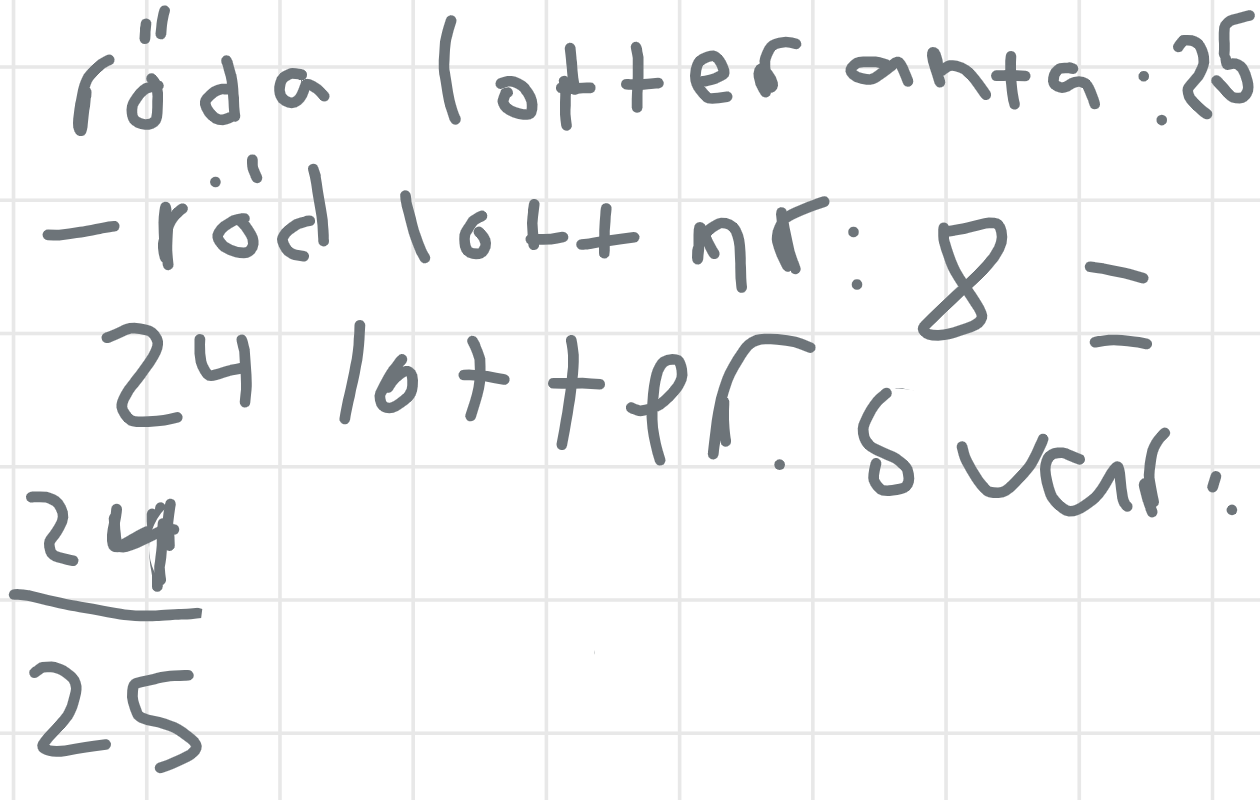 röda lotter anta: 25
- röd lott nr: 8 =
24 lotter. Svar:
24
25